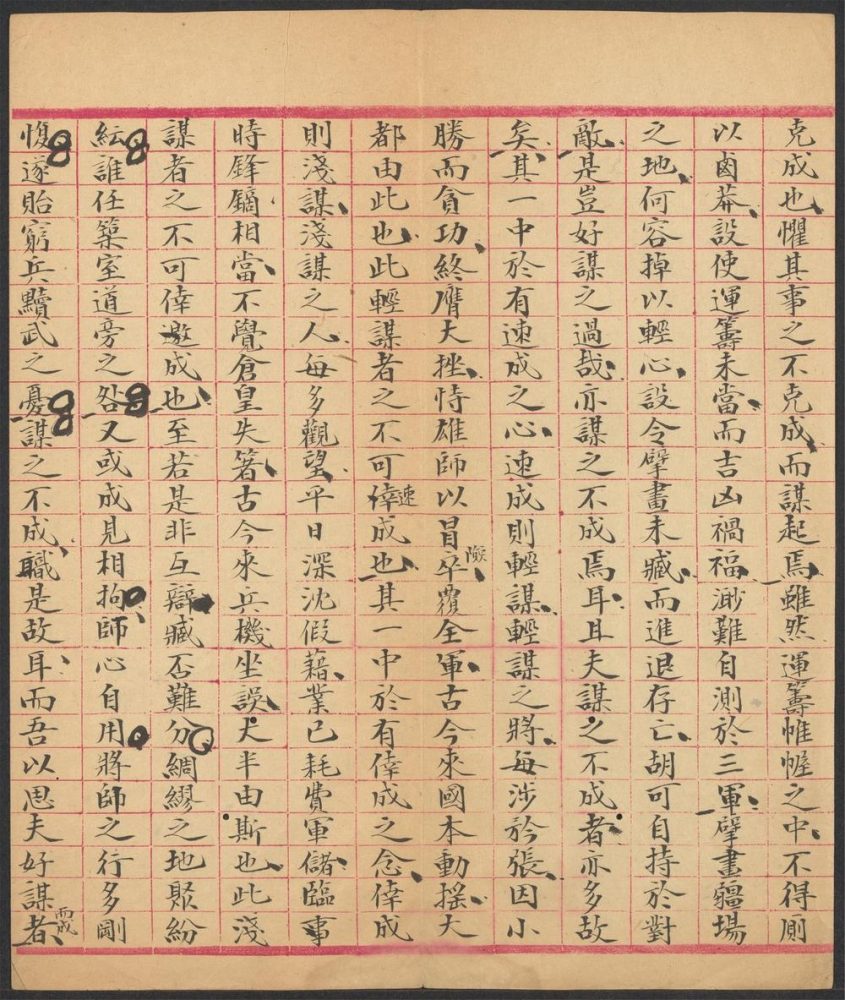 克成也懼其事之不克成而謀起焉雖然運籌帷幄之中不得厠
以鹵莽設使運籌未當而吉凶禍福渺難自測於三軍擘畫疆場
之地何容掉以輕心設令擘畫未臧而進退存亡胡可自持於對
敵是豈好謀之過哉亦謀之不成焉耳且夫謀之不成者亦多故
矣其一中於有速成之心速成則輕謀輕謀之將每涉矜張因小
勝而貪功終膺大挫恃雄師以冒險卒覆全軍古今來國本動搖大
都由此也此輕謀者之不可倖速成也其一中於有倖成之念倖成
則淺謀淺謀之人每多觀望平日深沈假藉業已耗費軍儲臨事
時鋒鏑相當不覺倉皇失箸古今來兵機坐誤大半由斯也此淺
謀者之不可倖邀成也至若是非互辯臧否難分綢繆之地聚紛
紜誰任築室道旁之咎又或成見相拘師心自用將師之行多剛
愎遂貽窮兵黷武之憂謀之不成職是故耳而吾以思夫好謀而成者